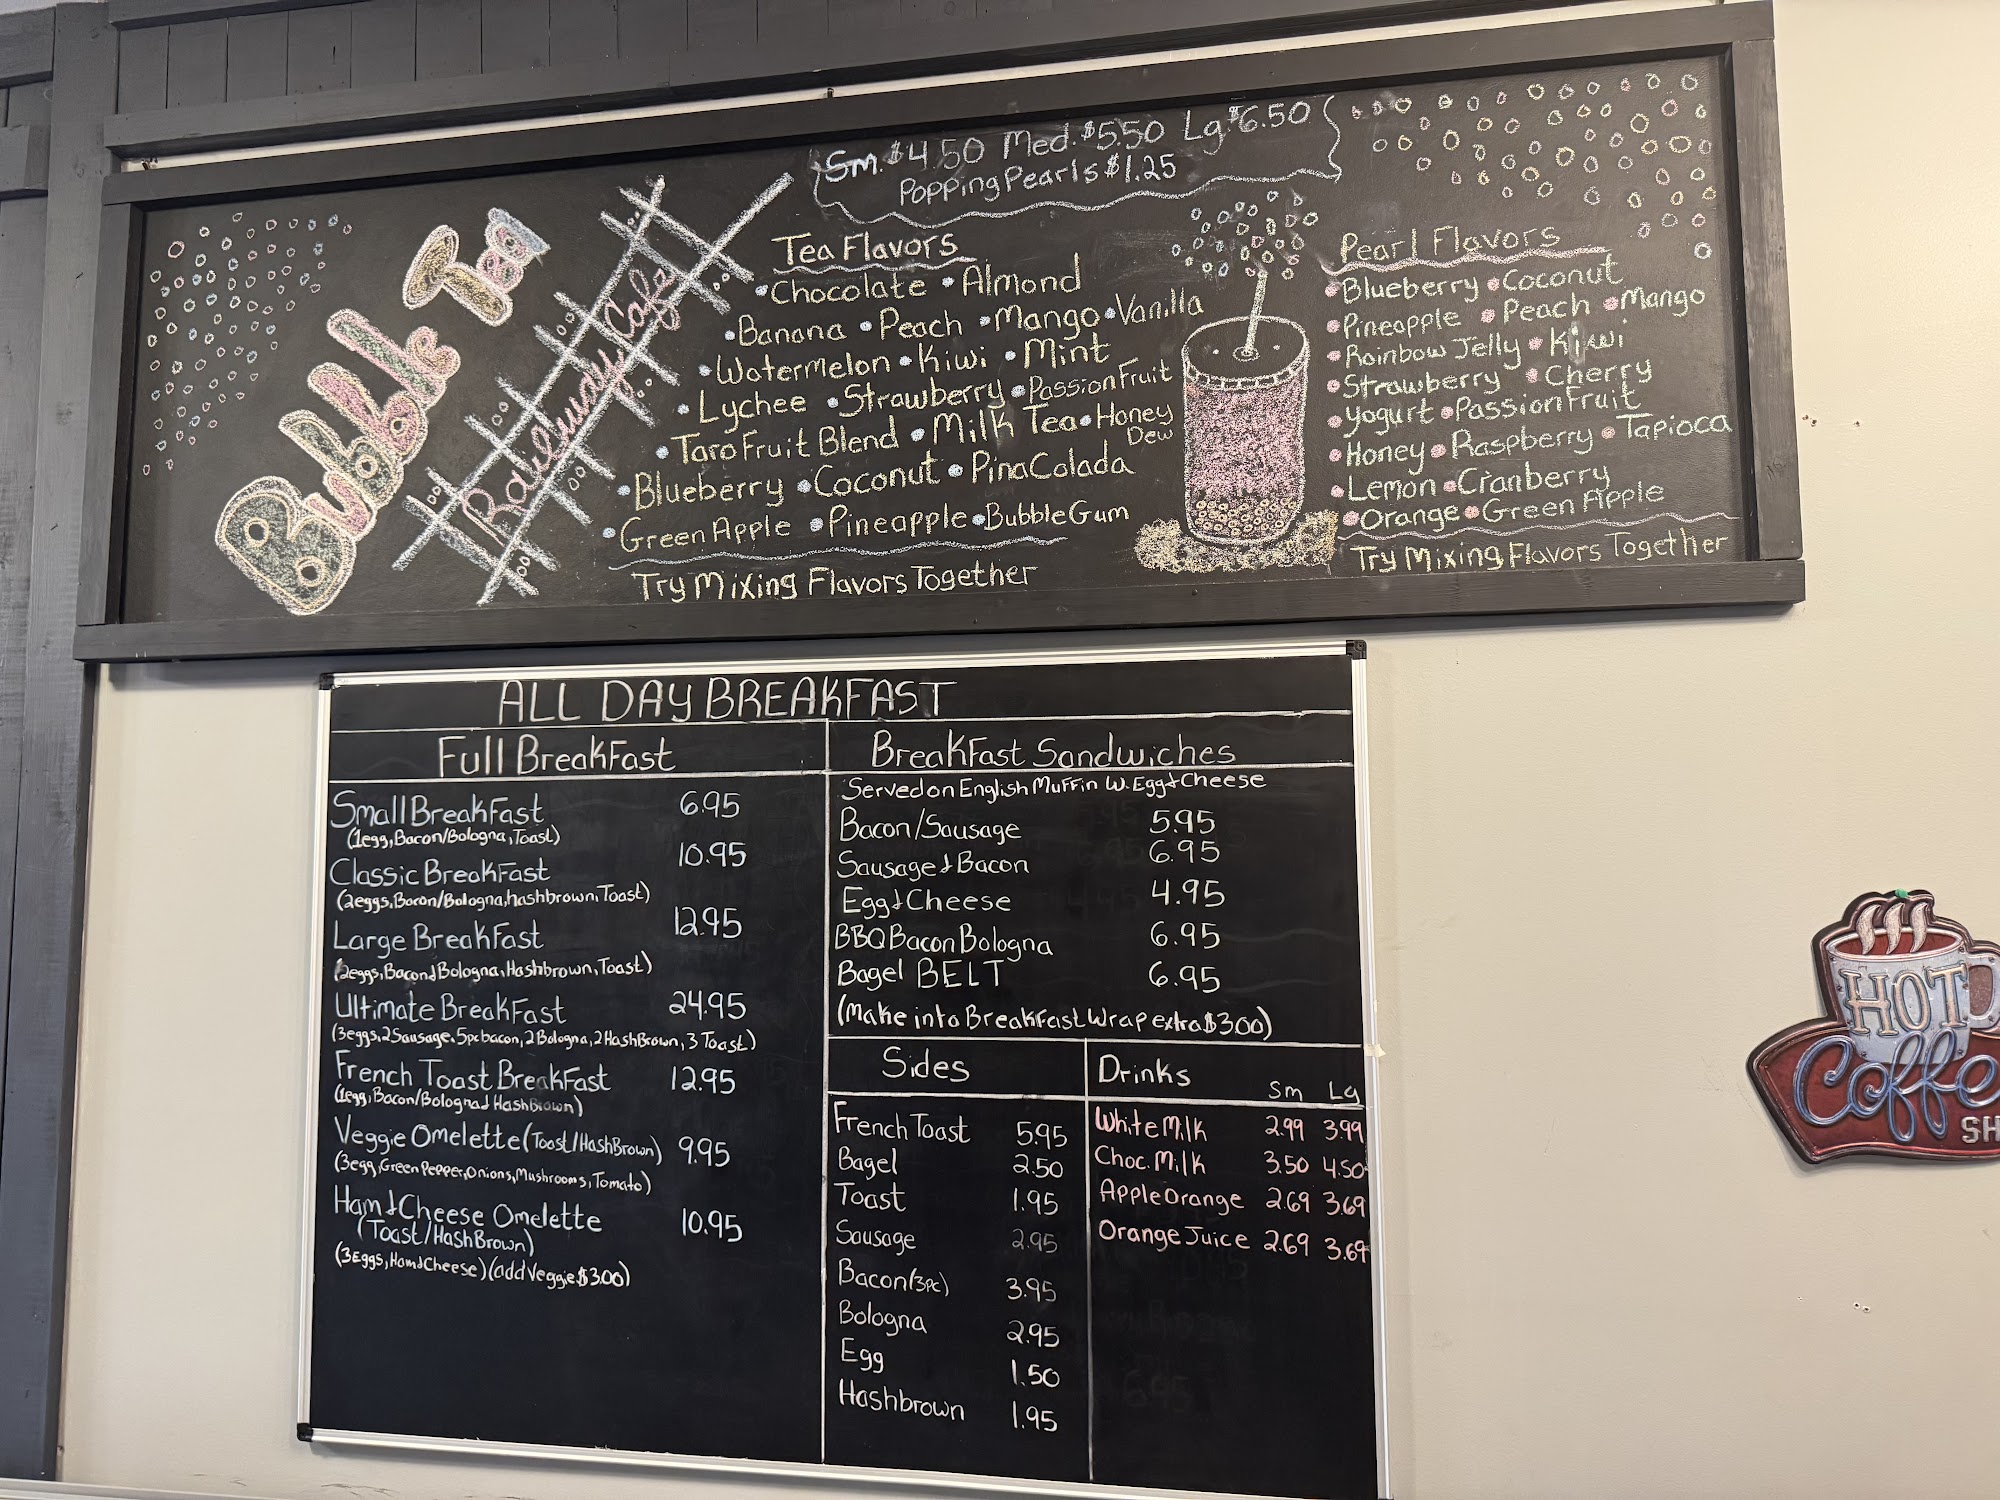 Sm. $4.50 Med. $5.50 Lg. $6.50
Popping Pearls $1.25
Bubble Tea
Railway Cafe
Tea Flavors
•Chocolate •Almond
•Banana •Peach •Mango •Vanilla
•Watermelon •Kiwi •Mint
•Lychee •Strawberry •Passion Fruit
•Taro Fruit Blend •Milk Tea •Honey Dew
•Blueberry •Coconut •Pina Colada
•Green Apple •Pineapple •Bubble Gum
Try Mixing Flavors Together
Pearl Flavors
•Blueberry •Coconut
•Pineapple •Peach •Mango
•Rainbow Jelly •Kiwi
•Strawberry •Cherry
•Yogurt •Passion Fruit
•Honey •Raspberry •Tapioca
•Lemon •Cranberry
•Orange •Green Apple
Try Mixing Flavors Together
ALL DAY BREAKFAST
Full Breakfast
Small Breakfast 6.95
(1egg, Bacon/Bologna, Toast)
Classic Breakfast 10.95
(2eggs, Bacon/Bologna, hashbrown, Toast)
Large Breakfast 12.95
(2eggs, Bacon & Bologna, Hashbrown, Toast)
Ultimate Breakfast 24.95
(3eggs, 2 Sausage, 5pc bacon, 2 Bologna, 2 HashBrown, 3 Toast)
French Toast Breakfast 12.95
(1egg, Bacon/Bologna & HashBrown)
Veggie Omelette (Toast/HashBrown) 9.95
(3egg, Green Pepper, Onions, Mushrooms, Tomato)
Ham & Cheese Omelette 10.95
(Toast/HashBrown)
(3Eggs, Ham & Cheese) (add Veggie $3.00)
Breakfast Sandwiches
Served on English Muffin w. Egg & Cheese
Bacon/Sausage 5.95
Sausage & Bacon 6.95
Egg & Cheese 4.95
BBQ Bacon Bologna 6.95
Bagel BELT 6.95
(Make into Breakfast Wrap extra $3.00)
Sides
French Toast 5.95
Bagel 2.50
Toast 1.95
Sausage 2.95
Bacon (3pc) 3.95
Bologna 2.95
Egg 1.50
Hashbrown 1.95
Drinks Sm Lg
White Milk 2.99 3.99
Choc. Milk 3.50 4.50
Apple Orange 2.69 3.69
Orange Juice 2.69 3.69
HOT
Coffee
SH